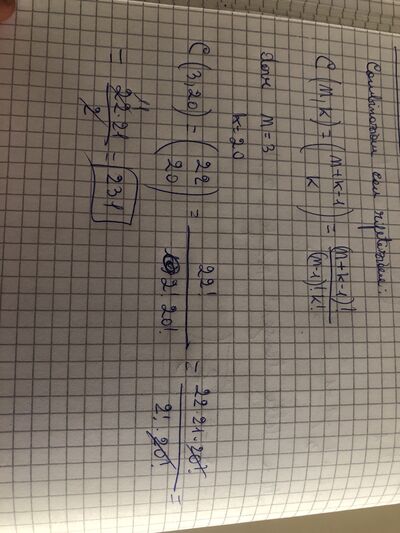 Combinazioni con ripetizioni:
C(n,k) = (n+k-1 k) = (n+k-1)! / (n-1)! k!
dove n=3
k=20
C(3,20) = (22 20) = 22! / 2! 20! = 22·21·20! / 2!·20! =
= 22·21 / 2 = 231